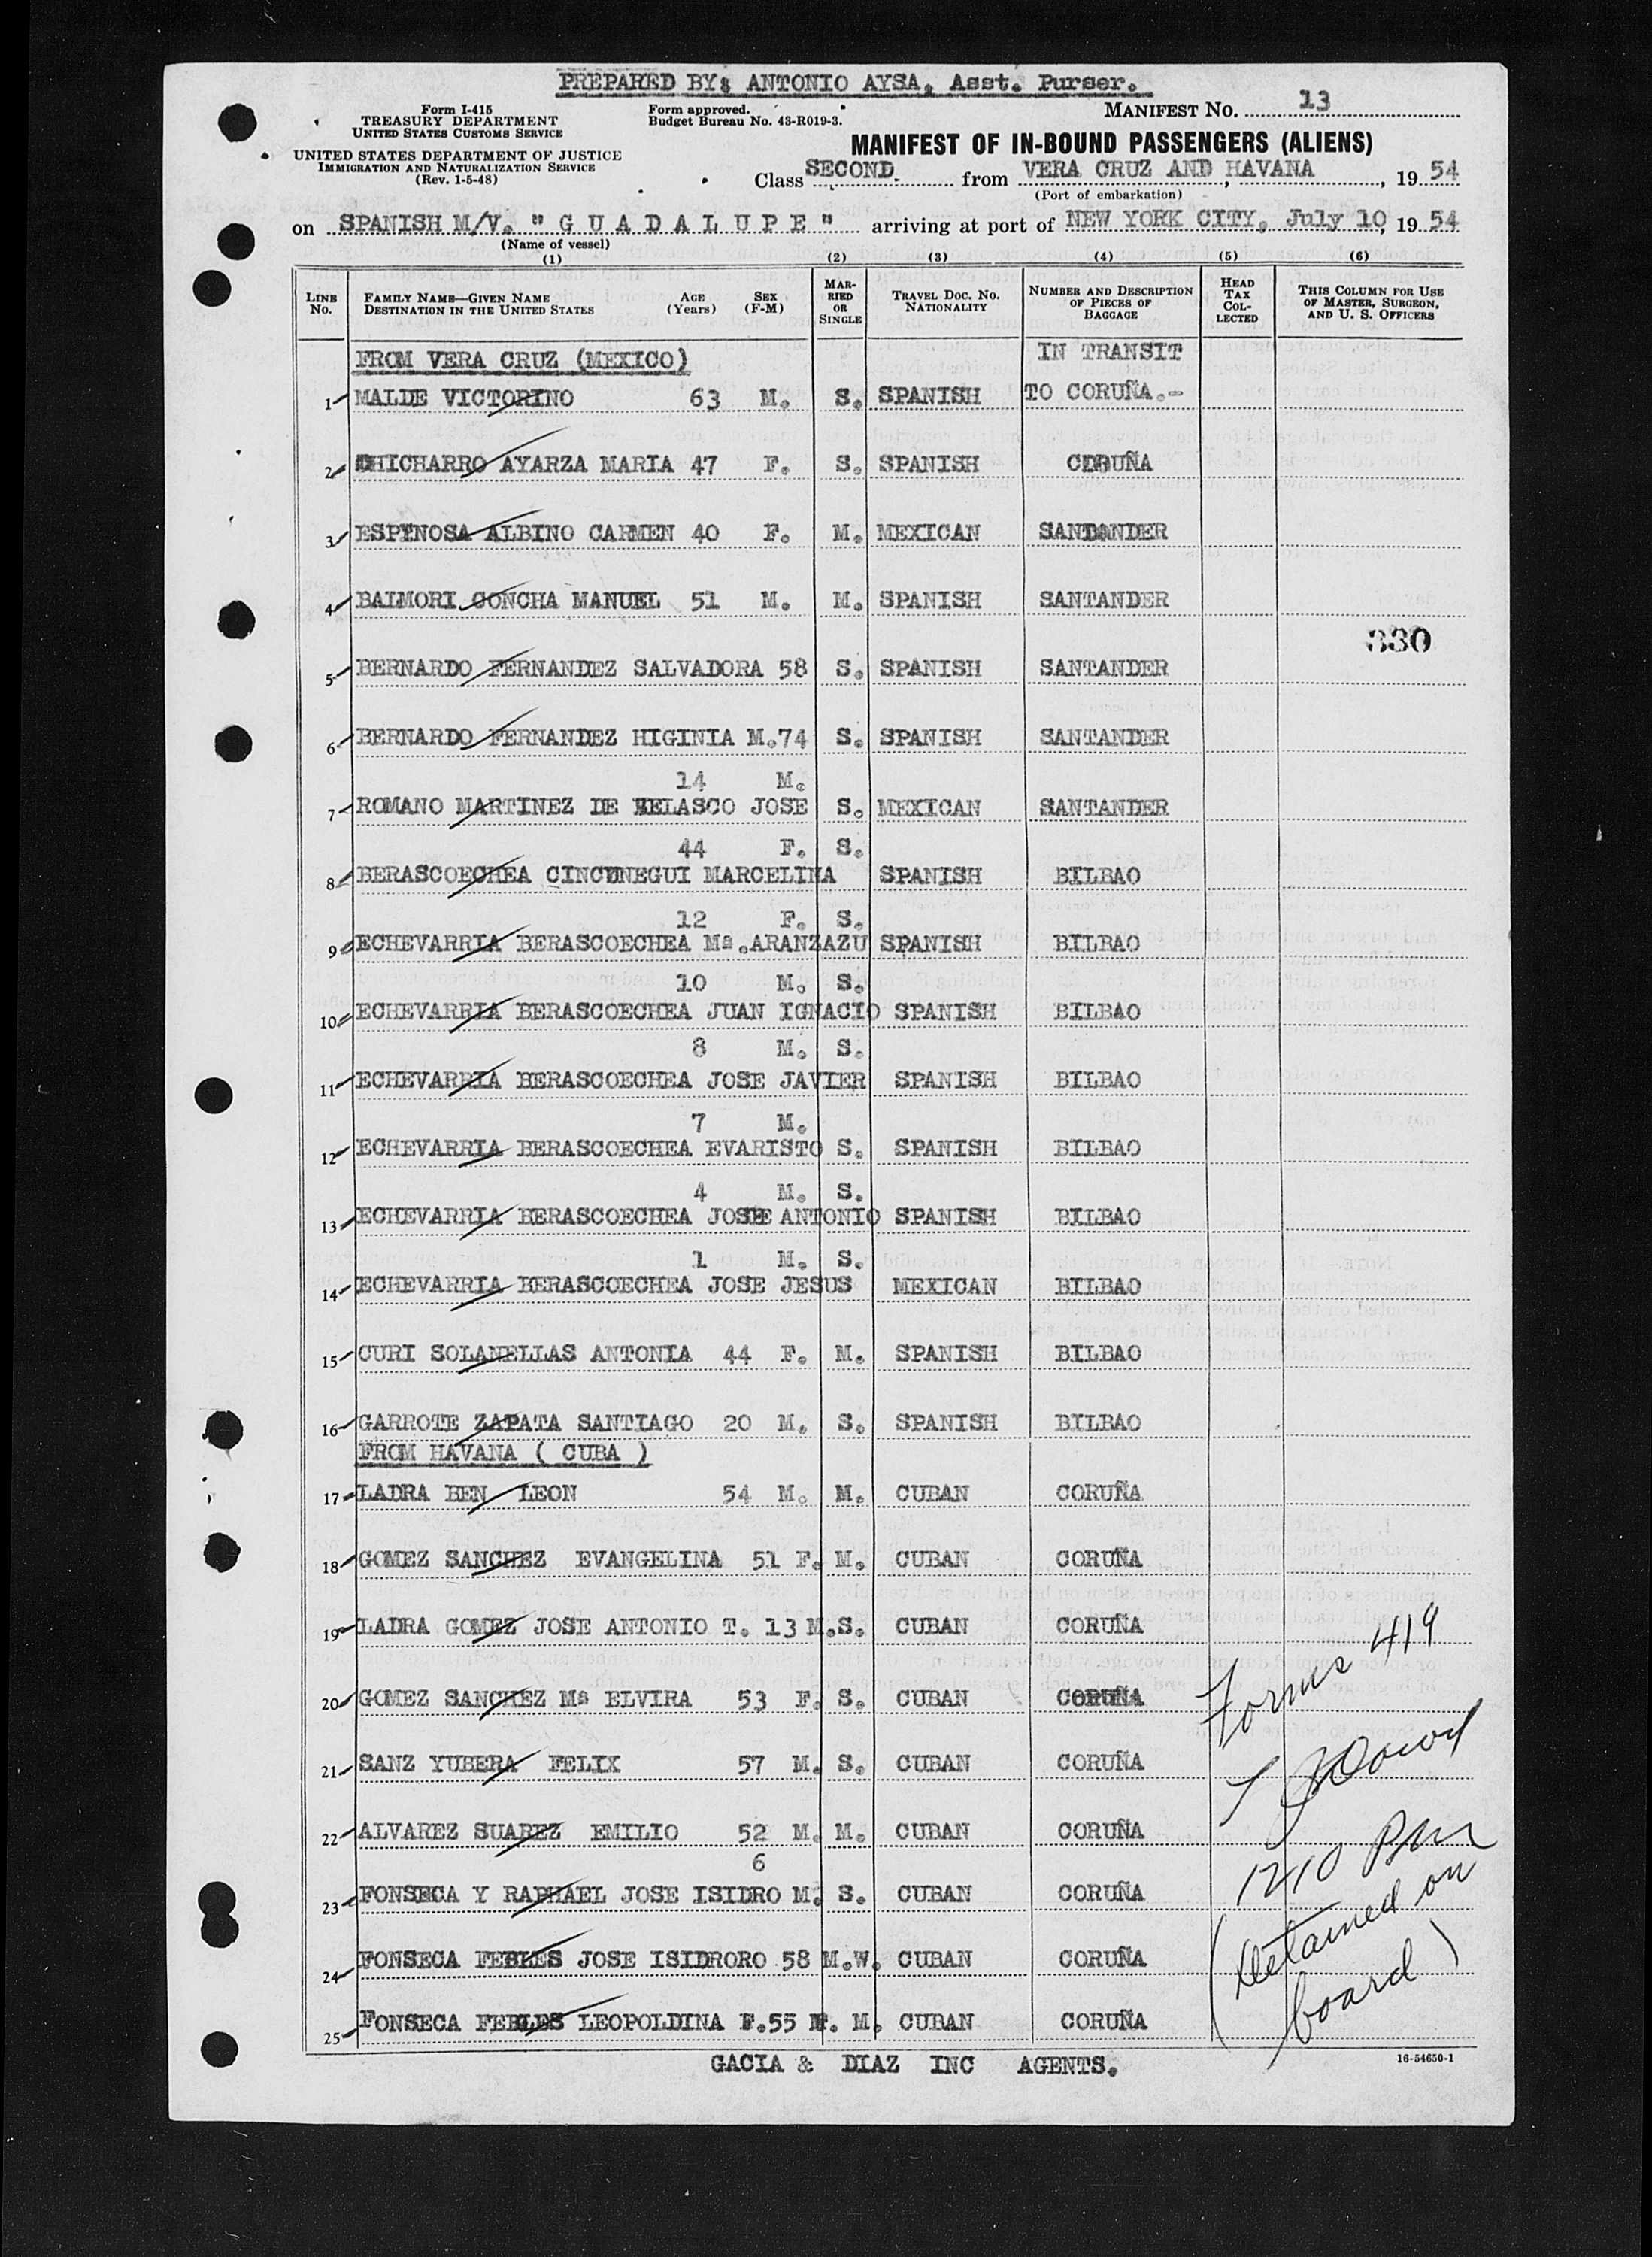 PREPARED BY: ANTONIO AYSA, Asst. Purser.
Form I-415
TREASURY DEPARTMENT
UNITED STATES CUSTOMS SERVICE
UNITED STATES DEPARTMENT OF JUSTICE
IMMIGRATION AND NATURALIZATION SERVICE
(Rev. 1-5-48)
Form approved.
Budget Bureau No. 43-R019-3.
MANIFEST NO. 13
MANIFEST OF IN-BOUND PASSENGERS (ALIENS)
Class SECOND. from VERA CRUZ AND HAVANA, 1954
(Port of embarkation)
on SPANISH M/V. "GUADALUPE" arriving at port of NEW YORK CITY, July 10, 1954
(Name of vessel)
(1) (2) (3) (4) (5) (6)
LINE NO. FAMILY NAME—GIVEN NAME DESTINATION IN THE UNITED STATES AGE (Years) SEX (F-M) MARRIED OR SINGLE TRAVEL DOC. NO. NATIONALITY NUMBER AND DESCRIPTION OF PIECES OF BAGGAGE HEAD TAX COLLECTED THIS COLUMN FOR USE OF MASTER, SURGEON, AND U. S. OFFICERS
FROM VERA CRUZ (MEXICO) IN TRANSIT
1 MALDE VICTORINO 63 M. S. SPANISH TO CORUÑA.-
2 CHICHARRO AYARZA MARIA 47 F. S. SPANISH CORUÑA
3 ESPINOSA ALBINO CARMEN 40 F. M. MEXICAN SANTANDER
4 BAIMORI CONCHA MANUEL 51 M. M. SPANISH SANTANDER
330
5 BERNARDO FERNANDEZ SALVADORA 58 S. SPANISH SANTANDER
6 BERNARDO FERNANDEZ HIGINIA M.74 S. SPANISH SANTANDER
14 M.
7 ROMANO MARTINEZ DE VELASCO JOSE S. MEXICAN SANTANDER
44 F. S.
8 BERASCOECHEA CINCUNEGUI MARCELINA SPANISH BILBAO
12 F. S.
9 ECHEVARRIA BERASCOECHEA Mª.ARANZAZU SPANISH BILBAO
10 M. S.
10 ECHEVARRIA BERASCOECHEA JUAN IGNACIO SPANISH BILBAO
8 M. S.
11 ECHEVARRIA BERASCOECHEA JOSE JAVIER SPANISH BILBAO
7 M.
12 ECHEVARRIA BERASCOECHEA EVARISTO S. SPANISH BILBAO
4 M. S.
13 ECHEVARRIA BERASCOECHEA JOSE ANTONIO SPANISH BILBAO
1 M. S.
14 ECHEVARRIA BERASCOECHEA JOSE JESUS MEXICAN BILBAO
15 CURI SOLANELLAS ANTONIA 44 F. M. SPANISH BILBAO
16 GARROTE ZAPATA SANTIAGO 20 M. S. SPANISH BILBAO
FROM HAVANA ( CUBA )
17 LADRA BEN LEON 54 M. M. CUBAN CORUÑA
18 GOMEZ SANCHEZ EVANGELINA 51 F. M. CUBAN CORUÑA
19 LADRA GOMEZ JOSE ANTONIO T. 13 M.S. CUBAN CORUÑA
20 GOMEZ SANCHEZ Mª ELVIRA 53 F. S. CUBAN CORUÑA
21 SANZ YUBERA FELIX 57 M. S. CUBAN CORUÑA
22 ALVAREZ SUAREZ EMILIO 52 M. M. CUBAN CORUÑA
6
23 FONSECA Y RAPHAEL JOSE ISIDRO M. S. CUBAN CORUÑA
24 FONSECA FEBLES JOSE ISIDRORO 58 M.W. CUBAN CORUÑA
25 FONSECA FEBLES LEOPOLDINA F.55 F. M. CUBAN CORUÑA
Forms 419
1210 PM
(Detained on
board)
GACIA & DIAZ INC AGENTS.
16-54650-1